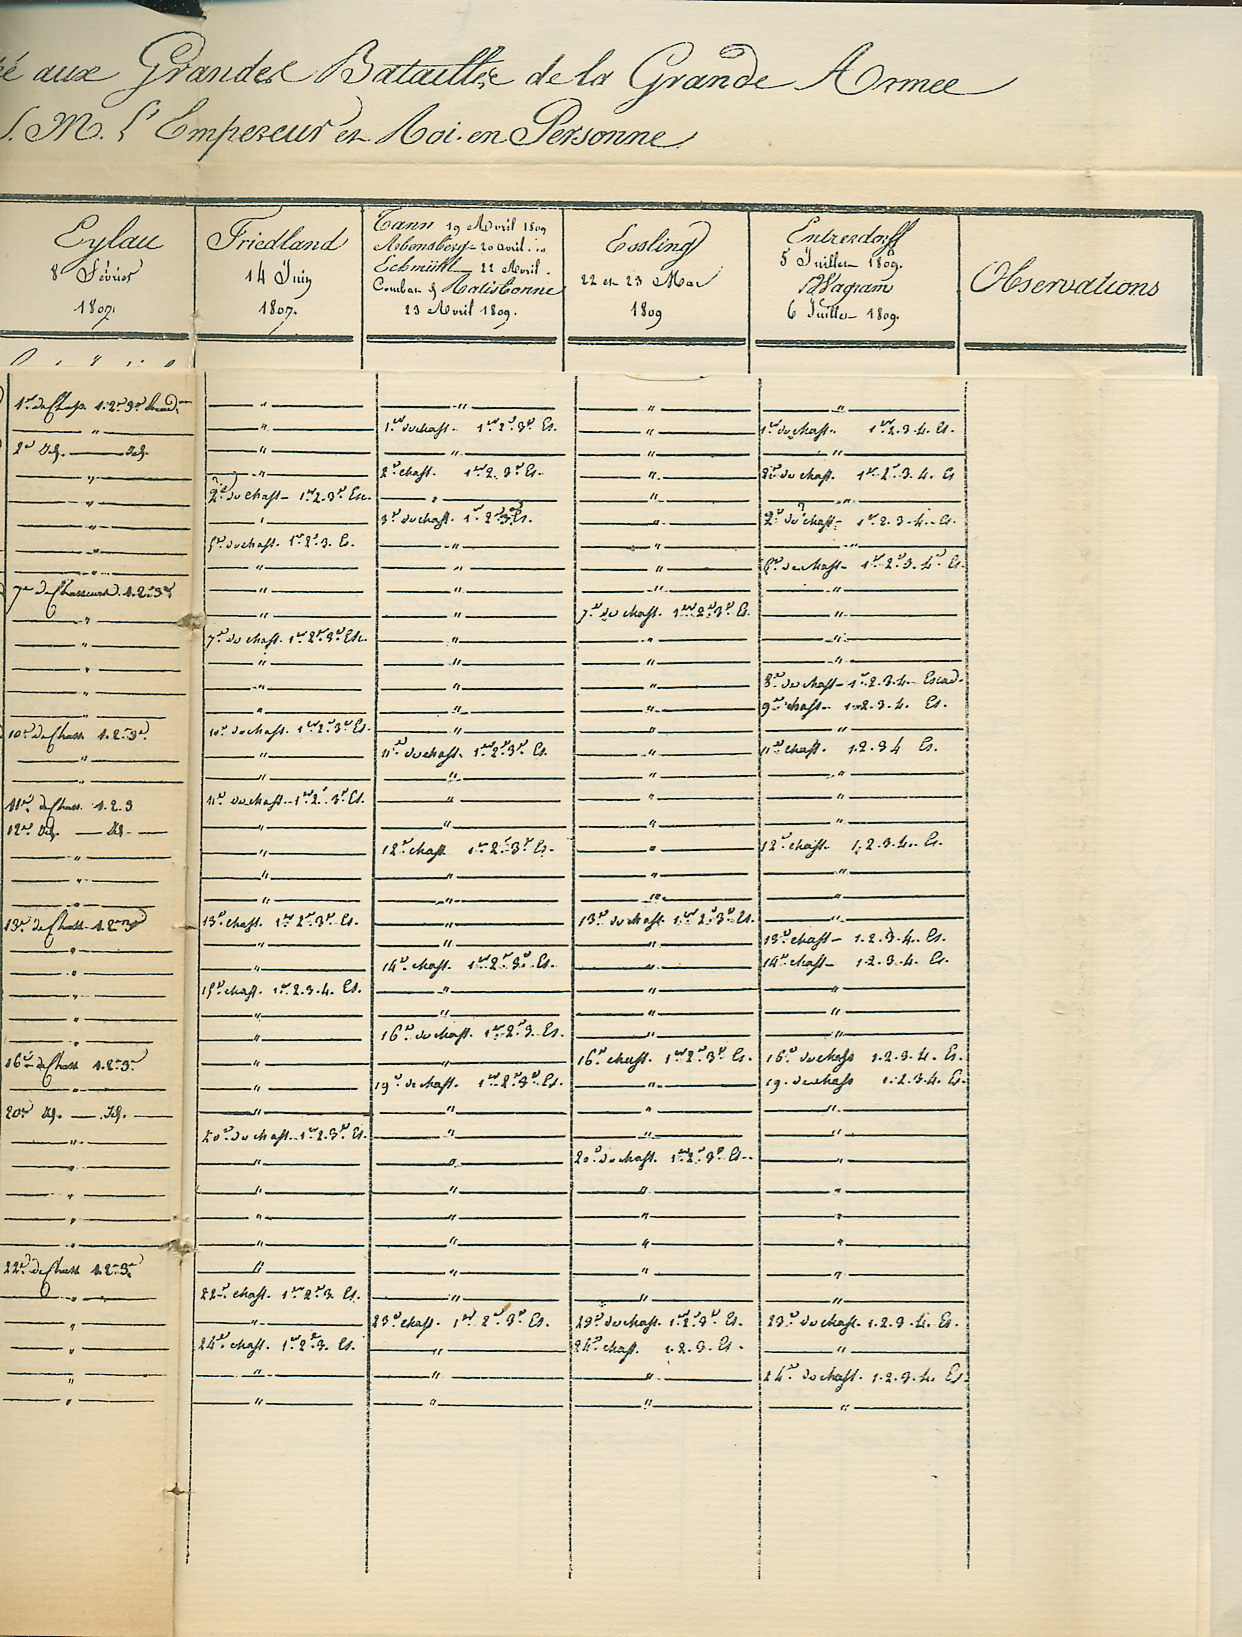 aux Grandes Batailles de la Grande Armee
S. M. l'Empereur et Roi en Personne
Eylau
8 Février
1807.
Friedland
14 Juin
1807.
Tann 19 Avril 1809
Abensberg 20 avril.
Eckmühl 22 Avril.
Combat de Ratisbonne
23 Avril 1809.
Essling
22 et 23 Mai
1809
Entzersdorff
5 Juillet 1809.
Wagram
6 Juillet 1809.
Observations
1er de Chass. 1.2.3e Escad.
" " " "
" 1er de chass. 1er 2e 3e Es. " 1er de chass. 1er 2.3.4. Es.
2e Id. Id. " " " "
" " 2e chass. 1er 2. 3e Es. " 2e de chass. 1er 2e 3. 4. Es
" 2e de chass 1er 2.3e Esc. " " "
" " 3e de chass. 1er 2e 3e Es. " de chass 1er 2.3.4. Es.
" 5e de chass. 1er 2e 3. Es. " " "
" " " " de chass 1er 2e 3.4e Es.
7e de Chasseurs 1.2e 3e " " " "
" " " 7e de chass. 1er 2e 3e Es. "
" 7e de chass. 1er 2e 3e Esc. " " "
" " " " "
" " " " 8e de chass 1er 2.3.4. Escad.
" " " " 9e chass 1er 2.3.4. Es.
10e de Chass 1.2.3e 10e de chass. 1er 2e 3e Es. " " "
" " 11e de chass. 1er 2e 3e Es. " 11e chass. 1.2.3 4 Es.
" " " " "
11e de Chass. 1.2.3 11e de chass. 1er 2e 3e Es. " " "
12e Id. Id. " " " "
" " 12e chass 1er 2e 3e Es. " 12e chass 1.2.3.4. Es.
" " " " "
" " " " "
13e de Chass 1.2e 3e 13e chass. 1er 2e 3e Es. " 13e de chass. 1er 2e 3e Es. "
" " " " 13e chass 1.2.3.4. Es.
" " 14e chass. 1er 2e 3e Es. " 14e chass 1.2.3.4. Es.
" 15e chass. 1er 2.3.4. Es. " " "
" " " " "
" " 16e de chass. 1er 2e 3. Es. " "
16e de Chass 1.2e 3e " " 16e chass. 1er 2e 3e Es. 16e de chass 1.2.3.4. Es.
" " 19e de chass. 1er 2e 3e Es. " 19. de chass 1.2.3.4. Es.
20e Id. Id. " " " "
" 20e de chass. 1er 2.3e Es. " " "
" " " 20e de chass. 1er 2e 3e Es. "
" " " " "
" " " " "
" " " " "
22e de Chass 1.2e 3e " " " "
" 22e chass. 1er 2e 3. Es. " " "
" " 23e chass. 1er 2e 3e Es. 23e de chass. 1er 2e 3e Es. 23e de chass. 1.2.3.4. Es.
" 24e chass. 1er 2e 3. Es. " 24e chass. 1.2.3. Es. "
" " " " 24e de chass. 1.2.3.4. Es.
" " " " "